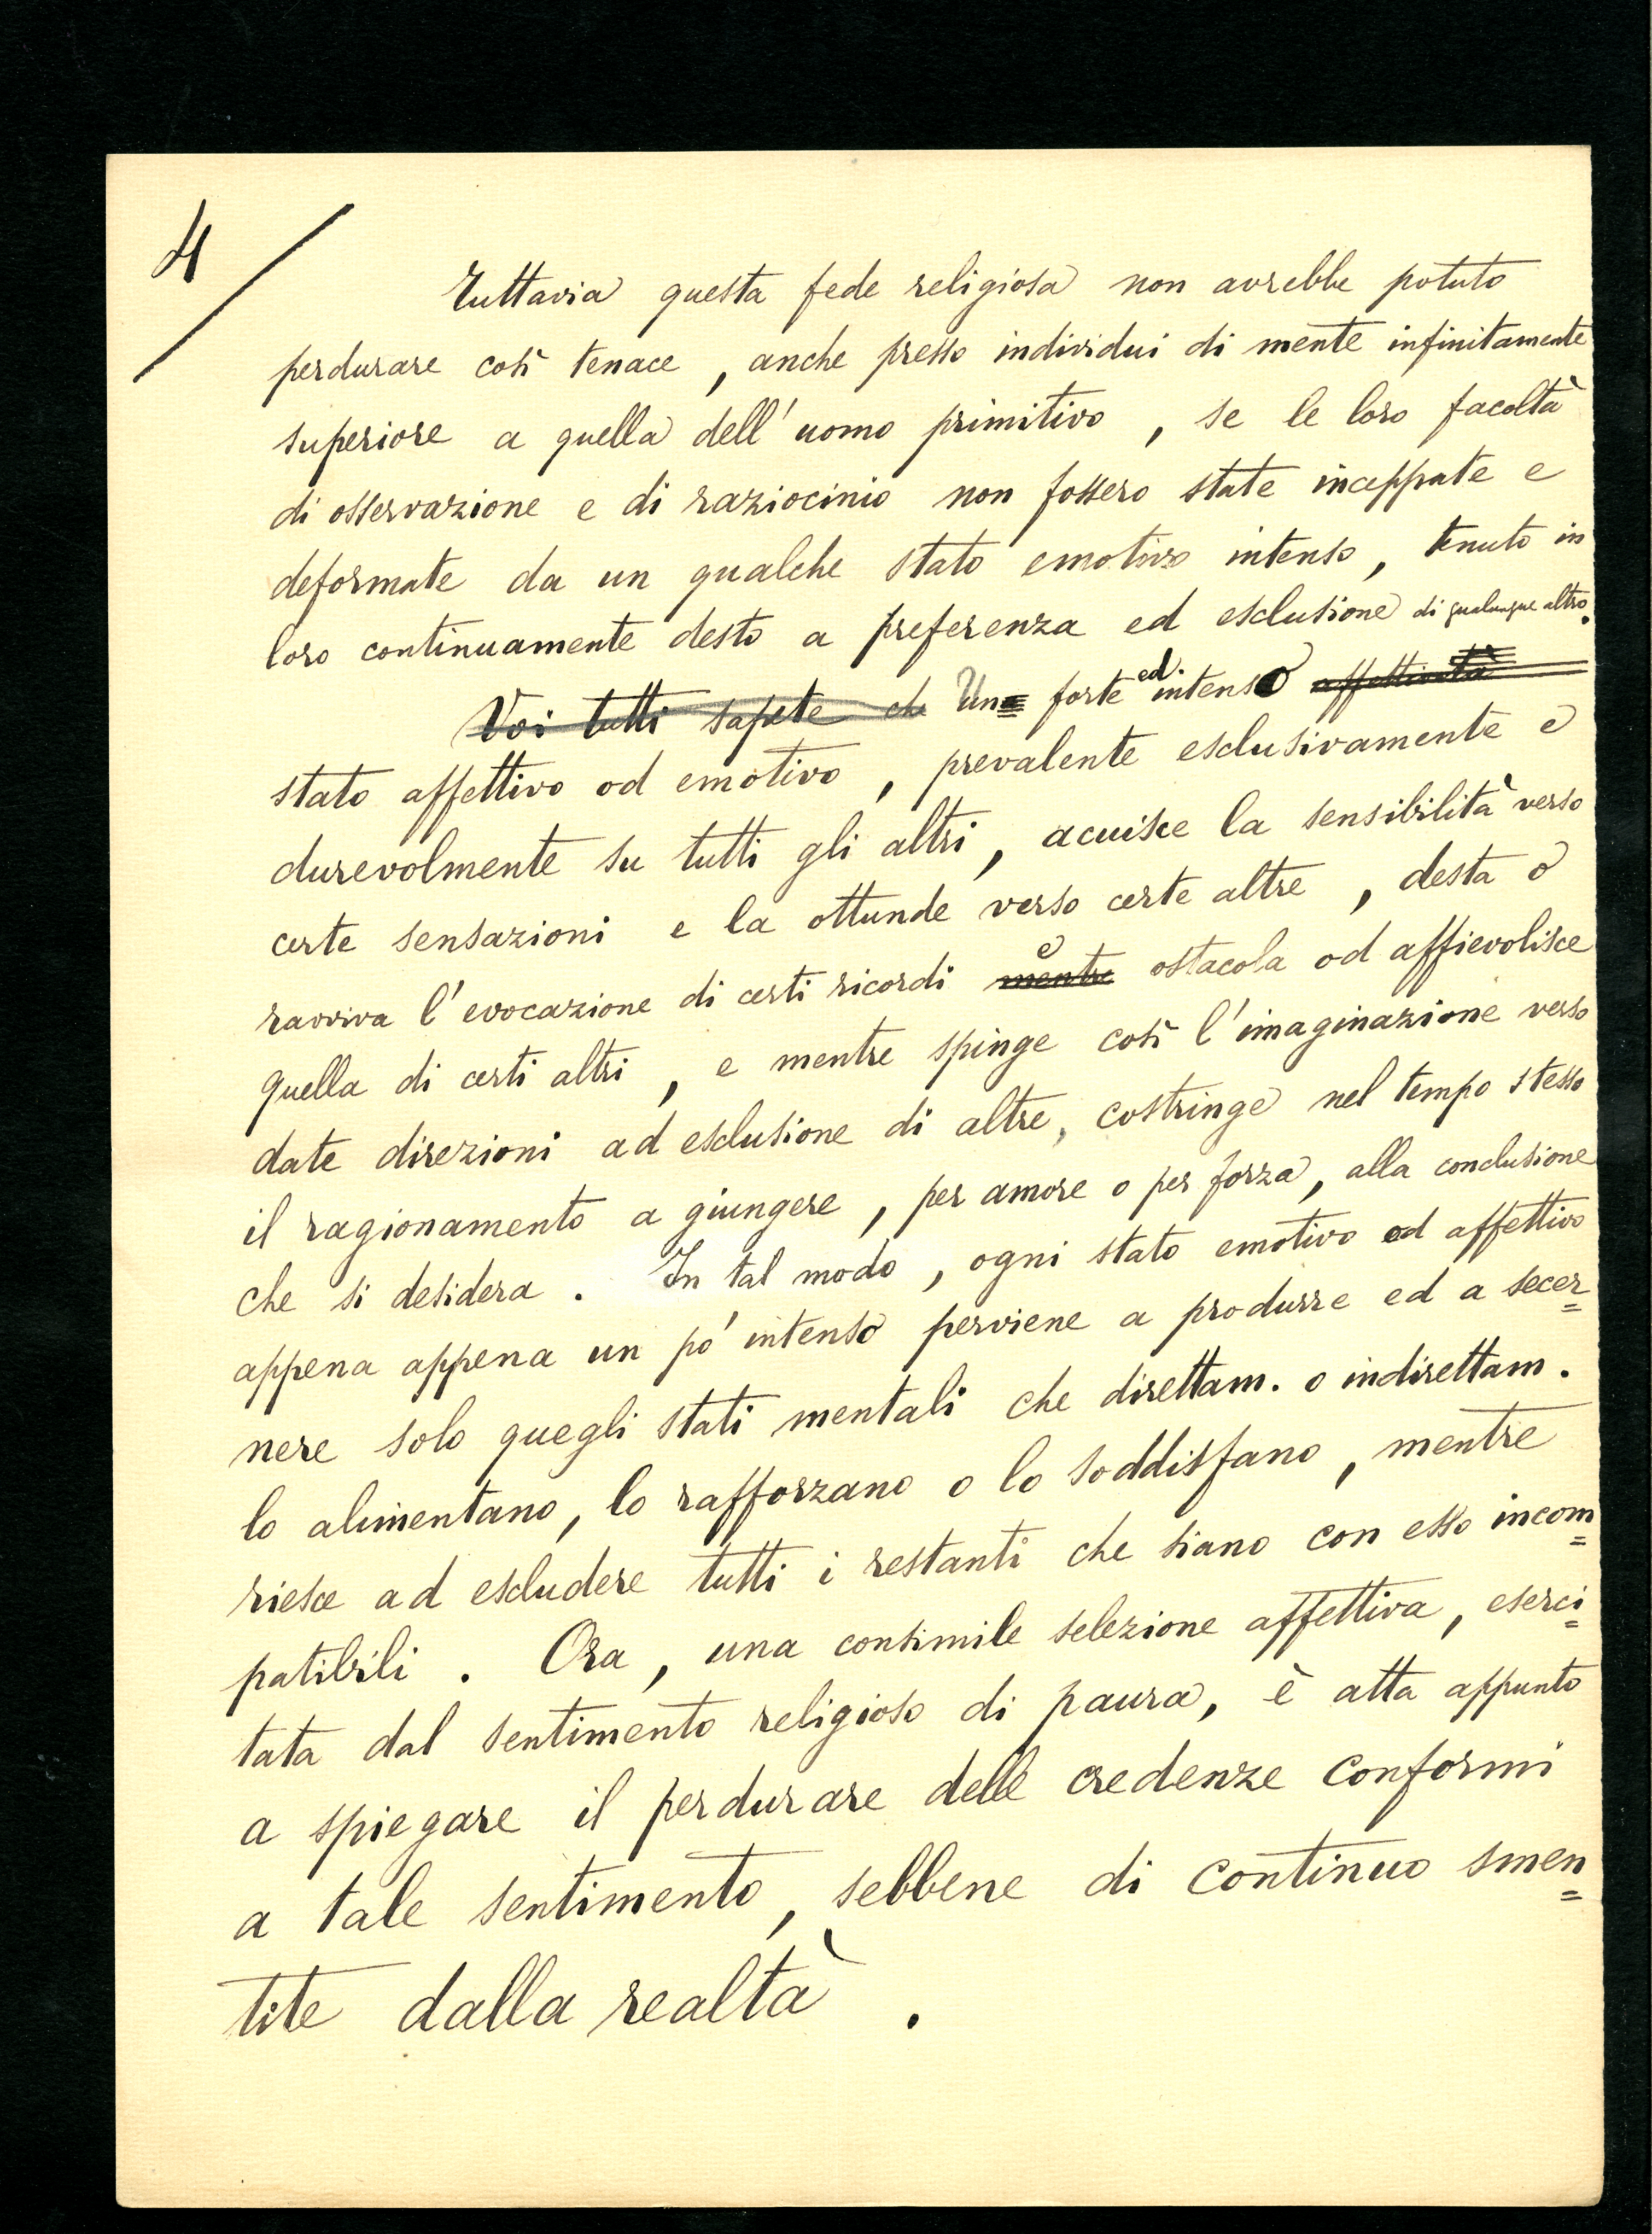 4/
Tuttavia questa fede religiosa non avrebbe potuto
perdurare così tenace, anche presso individui di mente infinitamente
superiore a quella dell'uomo primitivo, se le loro facoltà
di osservazione e di raziocinio non fossero state inceppate e
deformate da un qualche stato emotivo intenso, tenuto in
loro continuamente desto a preferenza ed esclusione di qualunque altro.
Voi tutti sapete ch Un forte ed intenso affettività
stato affettivo od emotivo, prevalente esclusivamente e
durevolmente su tutti gli altri, acuisce la sensibilità verso
certe sensazioni e la ottunde verso certe altre, desta o
ravviva l'evocazione di certi ricordi mentre e ostacola od affievolisce
quella di certi altri, e mentre spinge così l'imaginazione verso
date direzioni ad esclusione di altre, costringe nel tempo stesso
il ragionamento a giungere, per amore o per forza, alla conclusione
che si desidera. In tal modo, ogni stato emotivo od affettivo
appena appena un pó intenso perviene a produrre ed a secer=
nere solo quegli stati mentali che direttam. o indirettam.
lo alimentano, lo rafforzano o lo soddisfano, mentre
riesce ad escludere tutti i restanti che siano con esso incom=
patibili. Ora, una consimile selezione affettiva, eserci=
tata dal sentimento religioso di paura, è atta appunto
a spiegare il perdurare delle credenze conformi
a tale sentimento, sebbene di continuo smen=
tite dalla realtà.